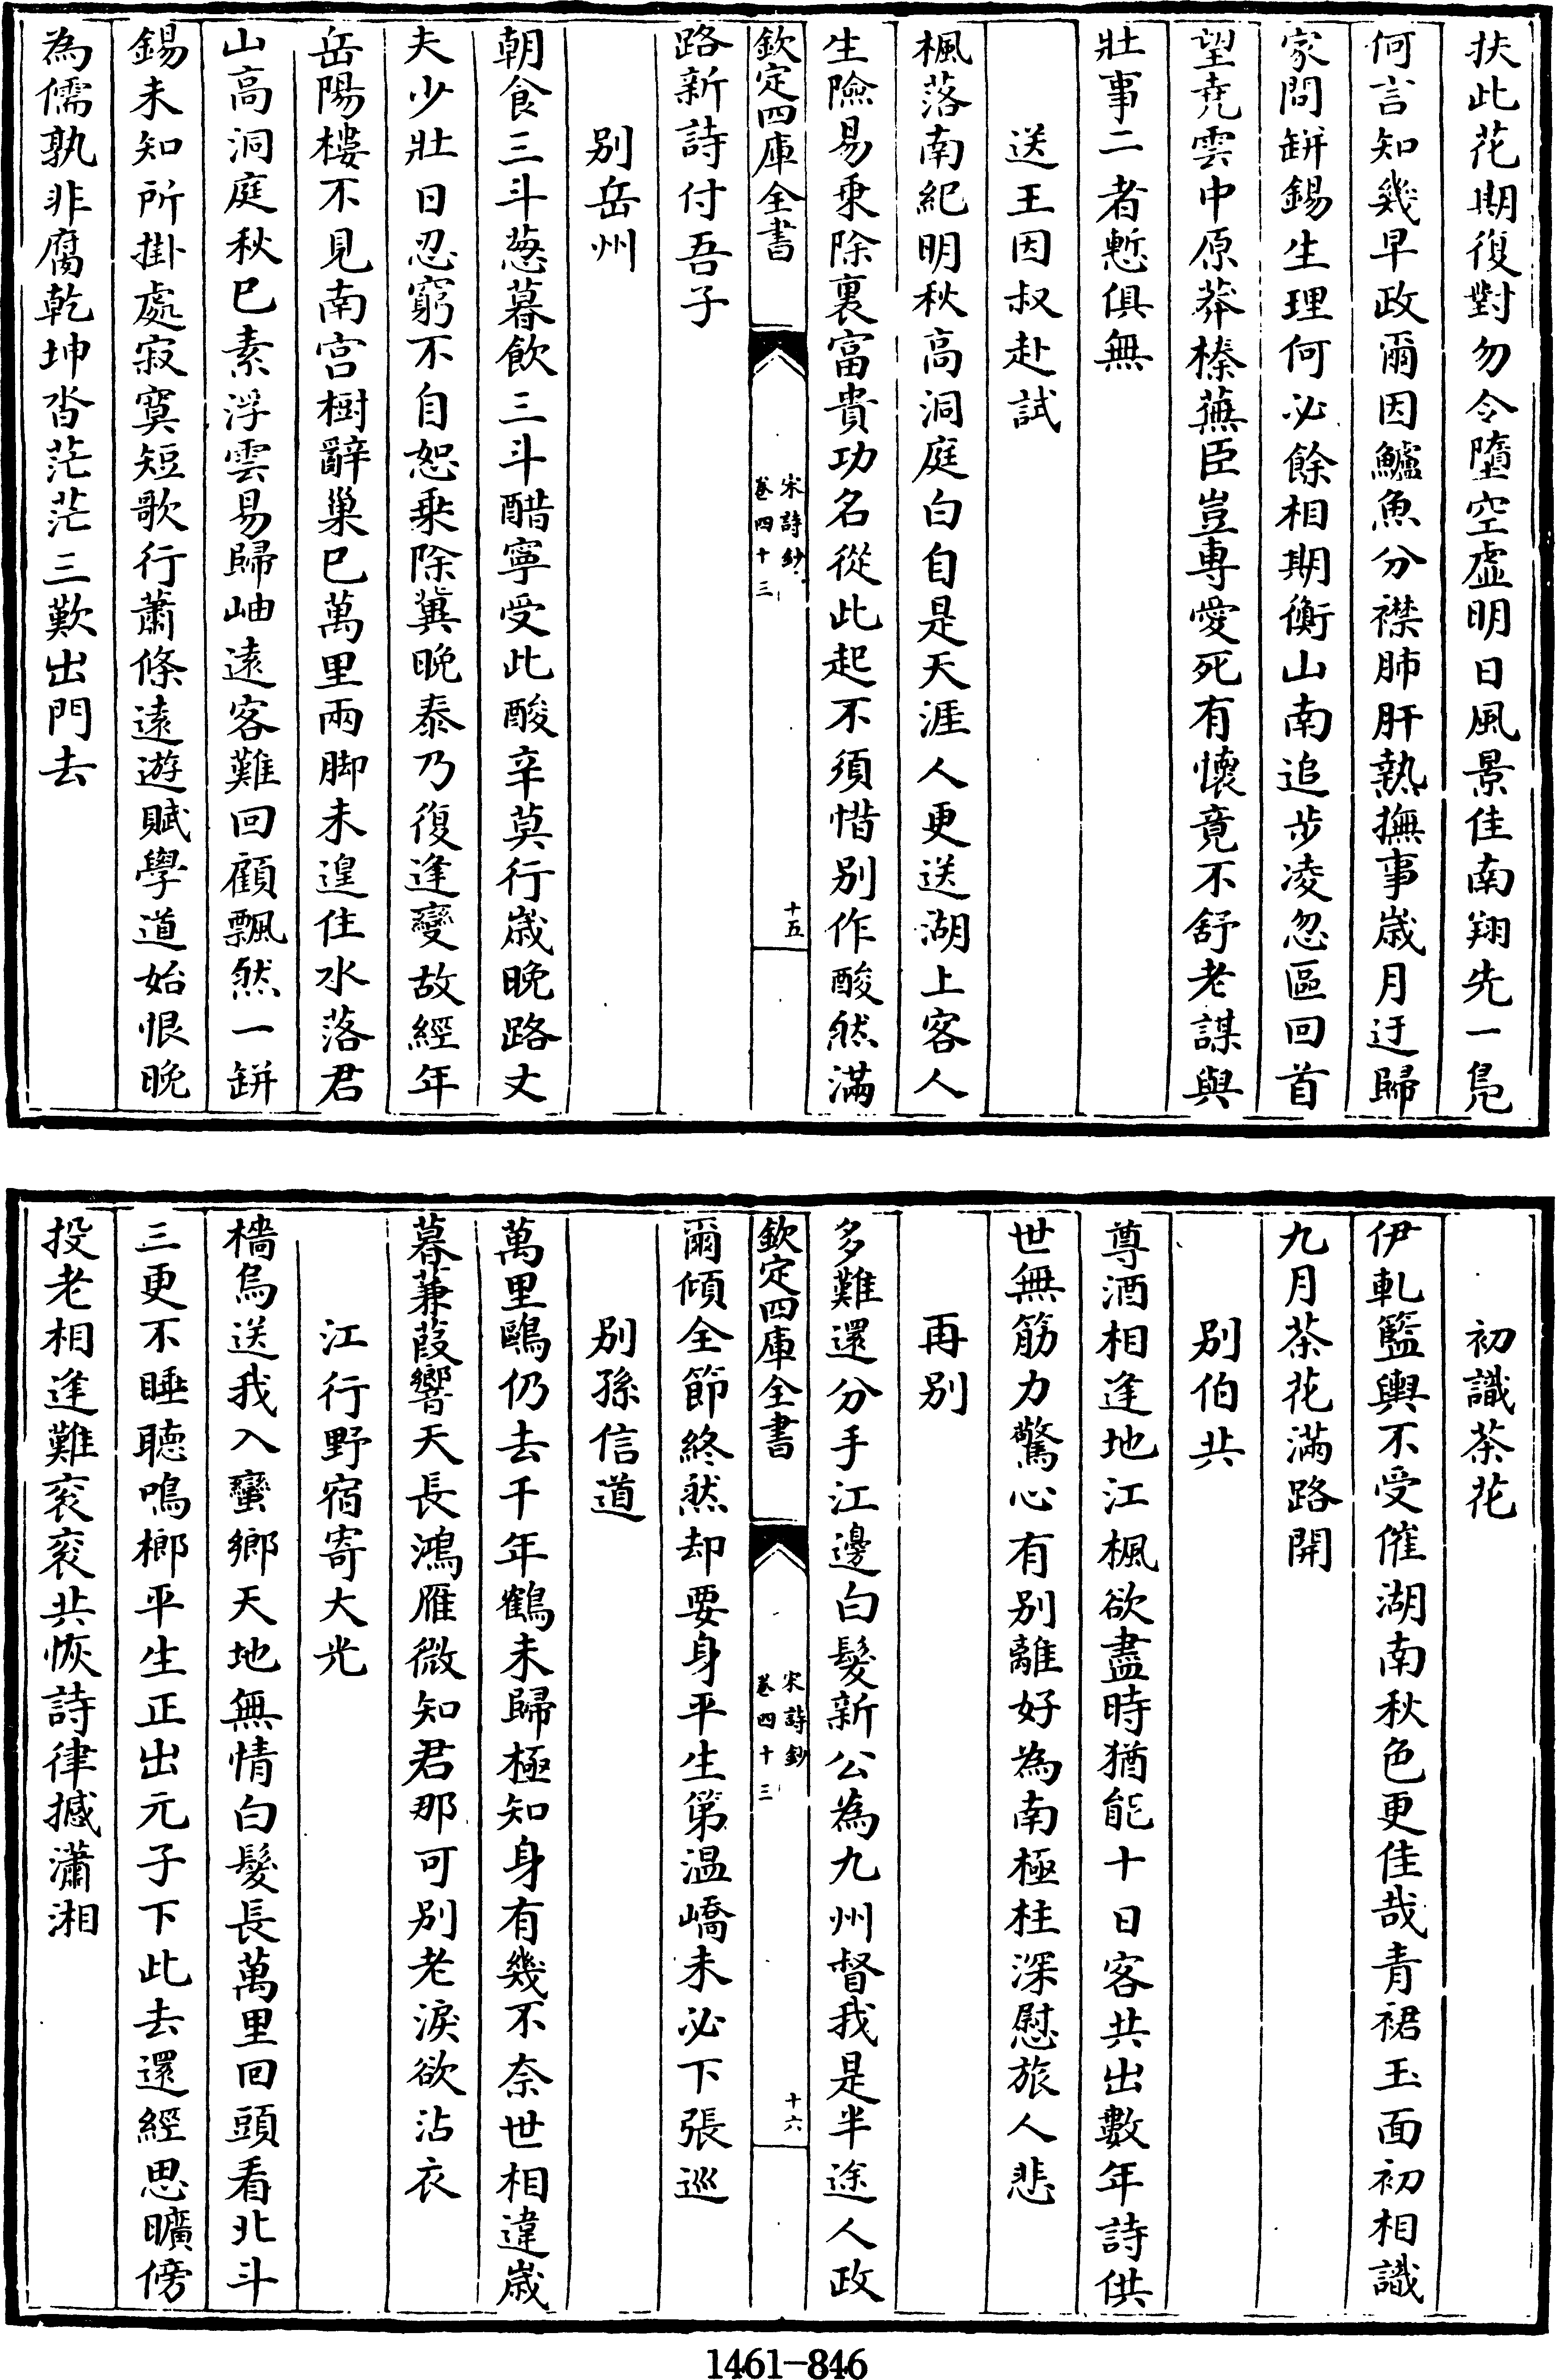 扶此花期復對勿令墮空虛明日風景佳南翔先一鳧
何言知幾早政爾因鱸魚分襟肺肝熱撫事歳月迂歸
家問缾錫生理何必餘相期衡山南追步凌忽區回首
望堯雲中原莽榛蕪臣豈専愛死有懷竟不舒老謀與
壯事二者慙俱無
送王因叔赴試
楓落南紀明秋高洞庭白自是天涯人更送湖上客人
生險易乗除裏富貴功名從此起不須惜别作酸然滿
欽定四庫全書
宋詩鈔
卷四十三
十五
路新詩付吾子
别岳州
朝食三斗葱暮飲三斗醋寧受此酸辛莫行歳晩路丈
夫少壯日忍窮不自恕乗除冀晩泰乃復逢變故經年
岳陽樓不見南宫樹辭巢已萬里兩脚未遑住水落君
山高洞庭秋已素浮雲易歸岫遠客難回顧飄然一缾
錫未知所掛處寂寞短歌行蕭條遠遊賦學道始恨晩
為儒孰非腐乾坤沓茫茫三歎出門去
初識茶花
伊軋籃輿不受催湖南秋色更佳哉青裙玉面初相識
九月茶花滿路開
别伯共
尊酒相逢地江楓欲盡時猶能十日客共出數年詩供
世無筋力驚心有别離好為南極柱深慰旅人悲
再别
多難還分手江邊白髮新公為九州督我是半途人政
欽定四庫全書
宋詩鈔
卷四十三
十六
爾傾全節終然却要身平生第温嶠未必下張巡
别孫信道
萬里鷗仍去千年鶴未歸極知身有幾不奈世相違歳
暮蒹葭響天長鴻雁微知君那可别老淚欲沾衣
江行野宿寄大光
檣烏送我入蠻鄉天地無情白髮長萬里回頭看北斗
三更不睡聴鳴榔平生正出元子下此去還經思曠傍
投老相逢難衮衮共恢詩律撼瀟湘
1461-846